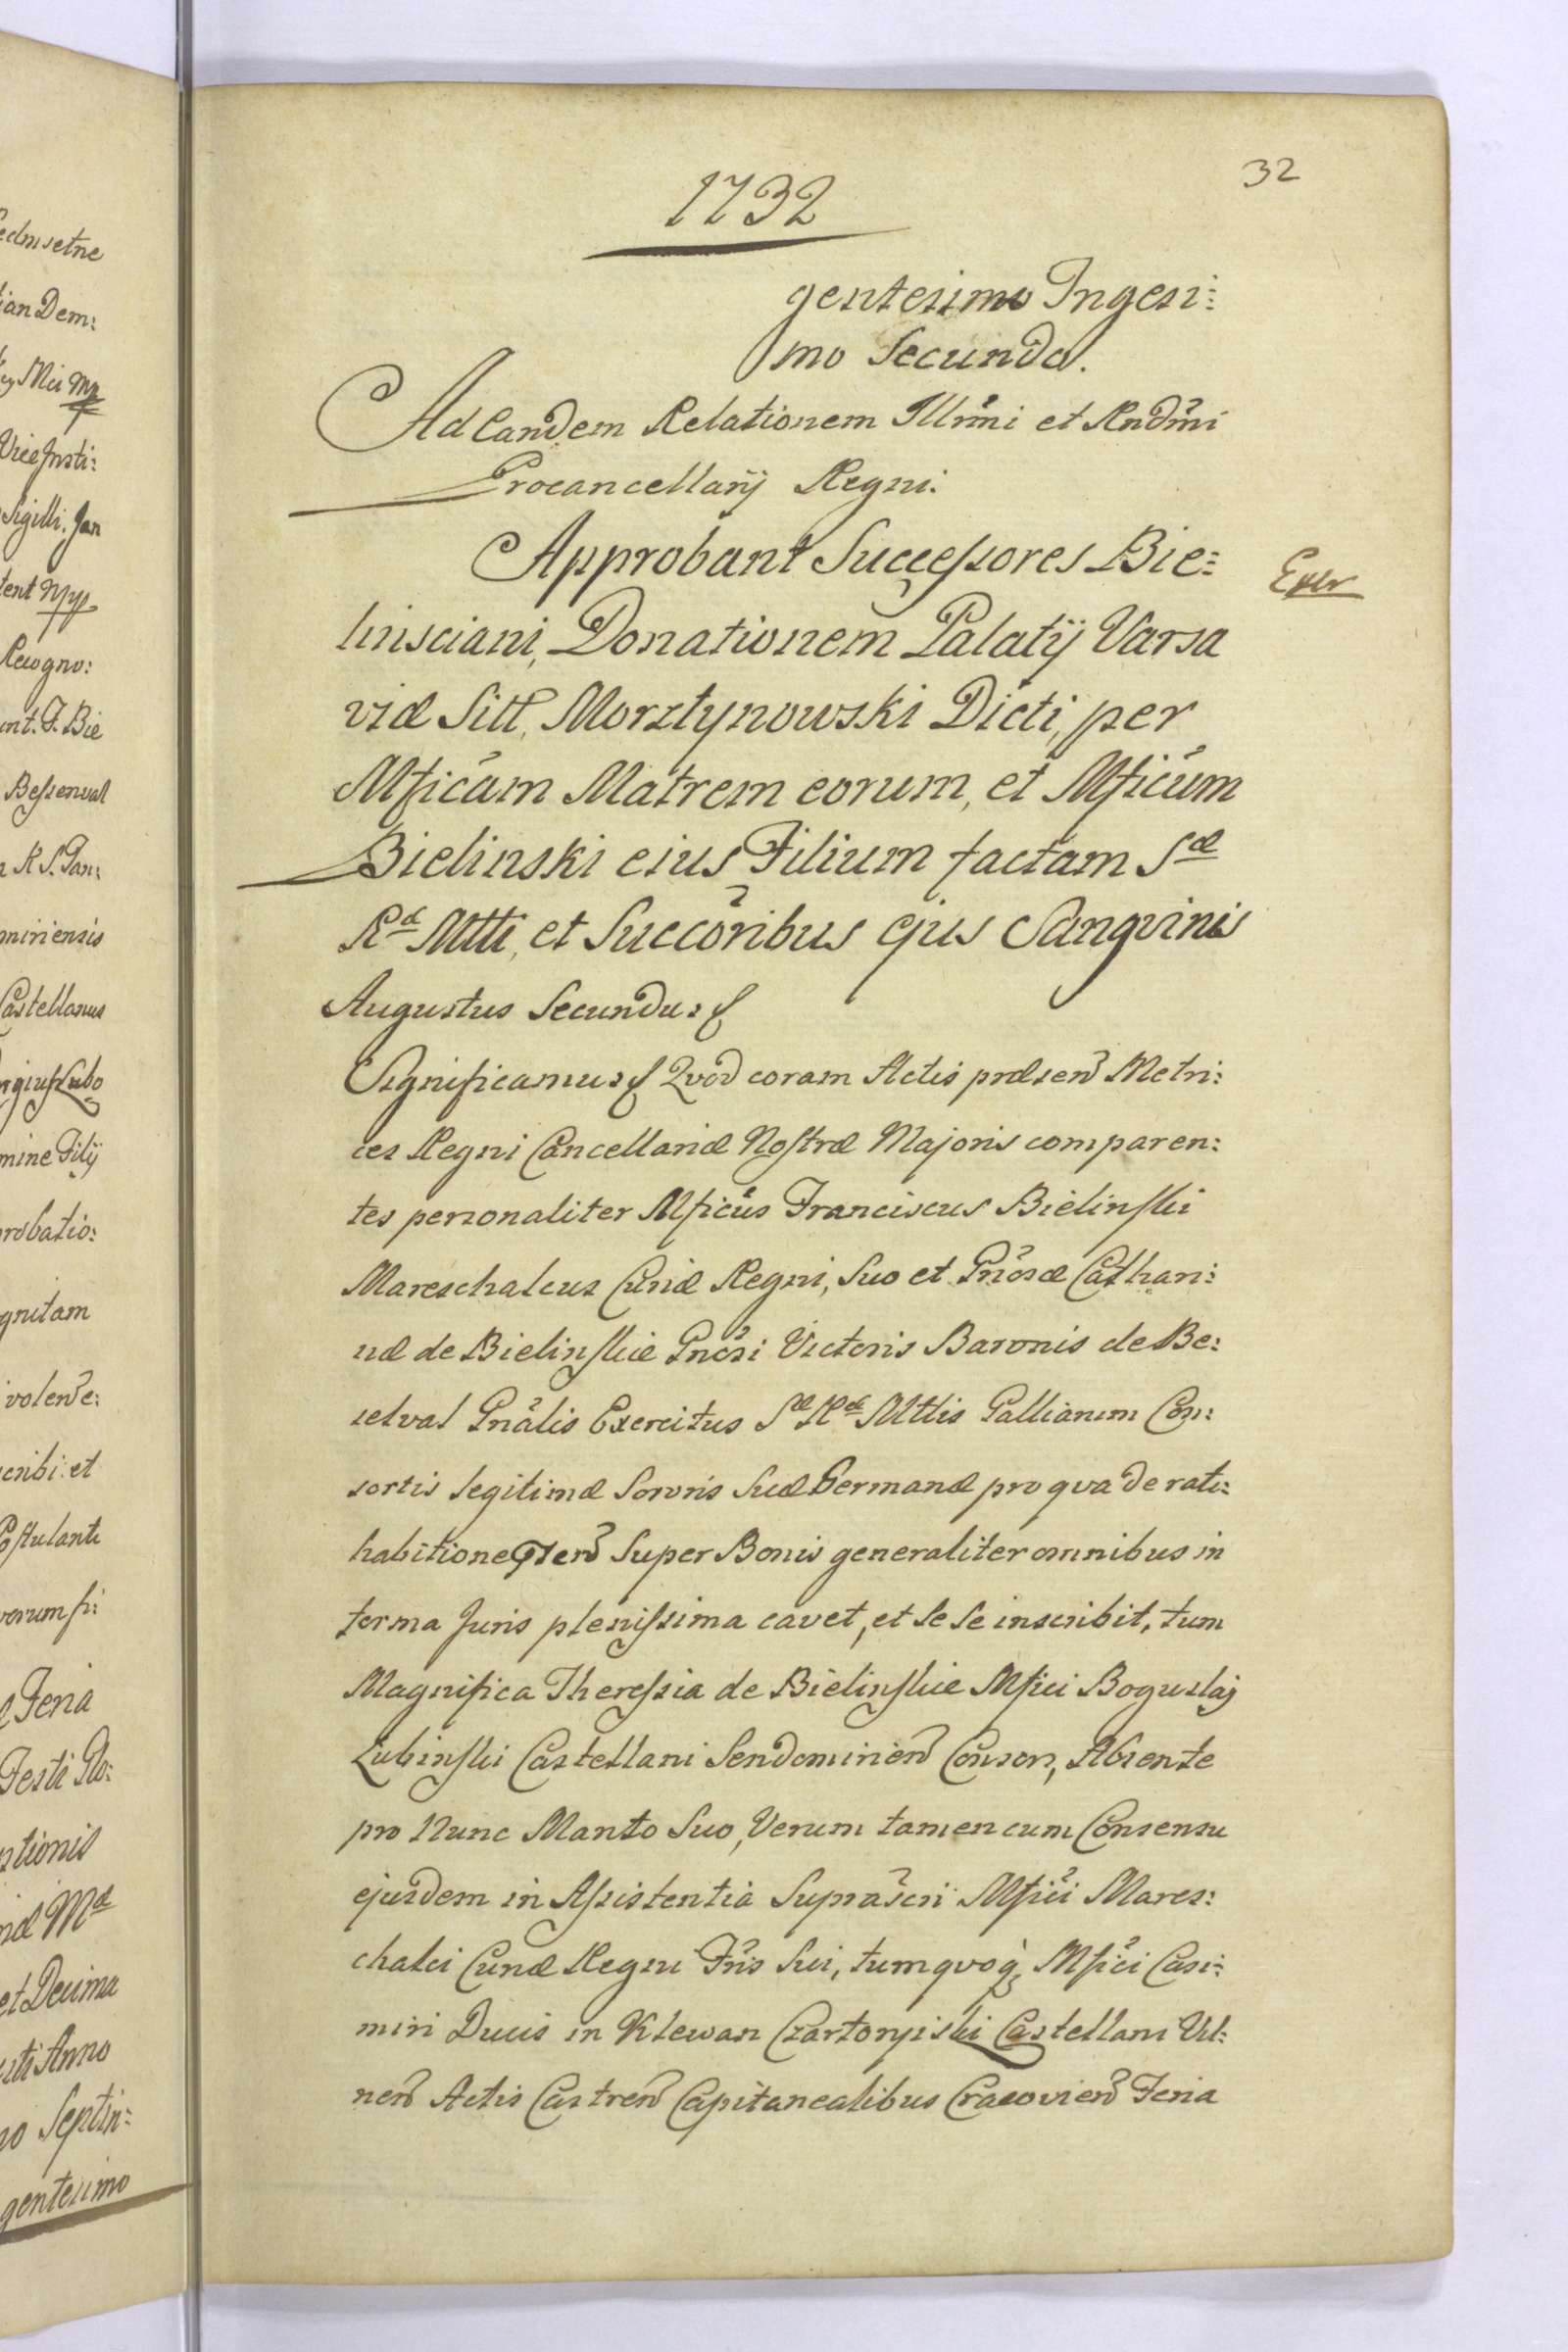 32
1732
gentesimo Trigesi:
mo Secundo.
Ad Eandem Relationem Illrmi et Rndmi
Procancellarij Regni.
Approbant Successores Bie:
Exer
linsciani, Donationem Palatij Varsa
viæ Sitt, Morztynowski Dicti, per
Mficam Matrem eorum, et Mficum
Bielinski eius Filium factam Sæ
Ræ Mtti, et Succoribus ejus Sangvinis
Augustus Secundus
Significamus Qvod coram Actis præsen Metri:
ces Regni Cancellariæ Nostræ Majoris comparen:
tes personaliter Mficus Franciscus Bielinski
Mareschalcus Curiæ Regni, Suo et Gnosæ Cathari:
næ de Bielinskie Gnosi Victoris Baronis de Be:
selval Gnalis Exercitus Sæ Ræ Mttis Galliarum Con:
sortis legitimæ Sororis Suæ Germanæ pro qva de rati:
habitione super Bonis generaliter omnibus in
forma Juris plenissima cavet, et se se inscribit, tum
Magnifica Theressia de Bielinskie Mfici Boguslaj
Lubinski Castellani Sendomirien Conson, Absente
pro Nunc Marito Suo, Verum tamen cum Consensu
ejusdem in Assistentia Suprascri Mfici Mares:
chalci Curiæ Regni Fris Sui, tumqvoq Mfici Casi:
miri Ducis in Klewan Czartoryiski Castellani Vil:
nen Actis Castren Capitanealibus Cracovien Feria
edmsetne
ian Dem:
Mei Mp
Vice Insti:
Sigilli. Jan
tent Mpp
Recogno:
nt. F. Bie
Bessenval
R S. Pan:
miriensis
Castellanus
Lubo
mine Filij
robatio:
gnitam
volene:
cribi et
Postulanti
verum si:
Feria
Festi Glo:
ptionis
Mæ
et Decima
Anno
Septin:
gentesimo